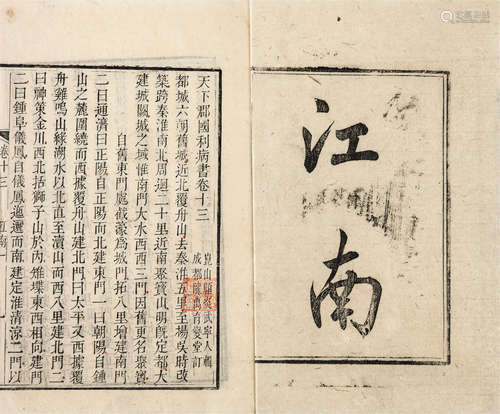 江南
天下郡國利病書卷十三
崑山顧炎武寧人輯
成都龍萬育燮堂訂
都城六朝舊城近北覆舟山去秦淮五里至楊吳時改
築跨秦淮南北周迴二十里近南聚寶山明既定都大
建城闕城之域惟南門大水西西三門因舊更名聚寶
自舊東門處截濠為城門拓八里增建南門
二曰通濟曰正陽自正陽而北建東門一曰朝陽自鍾
山之麓圍繞而西據覆舟山建北門曰太平又西據
舟雞鳴山緣湖水以北直至瀆山而西八里建北門二
曰神策金川西北括獅子山於內雉堞東西相向建門
二曰鍾阜儀鳳自儀鳳迤邐而南建定淮清涼二門以
卷十三